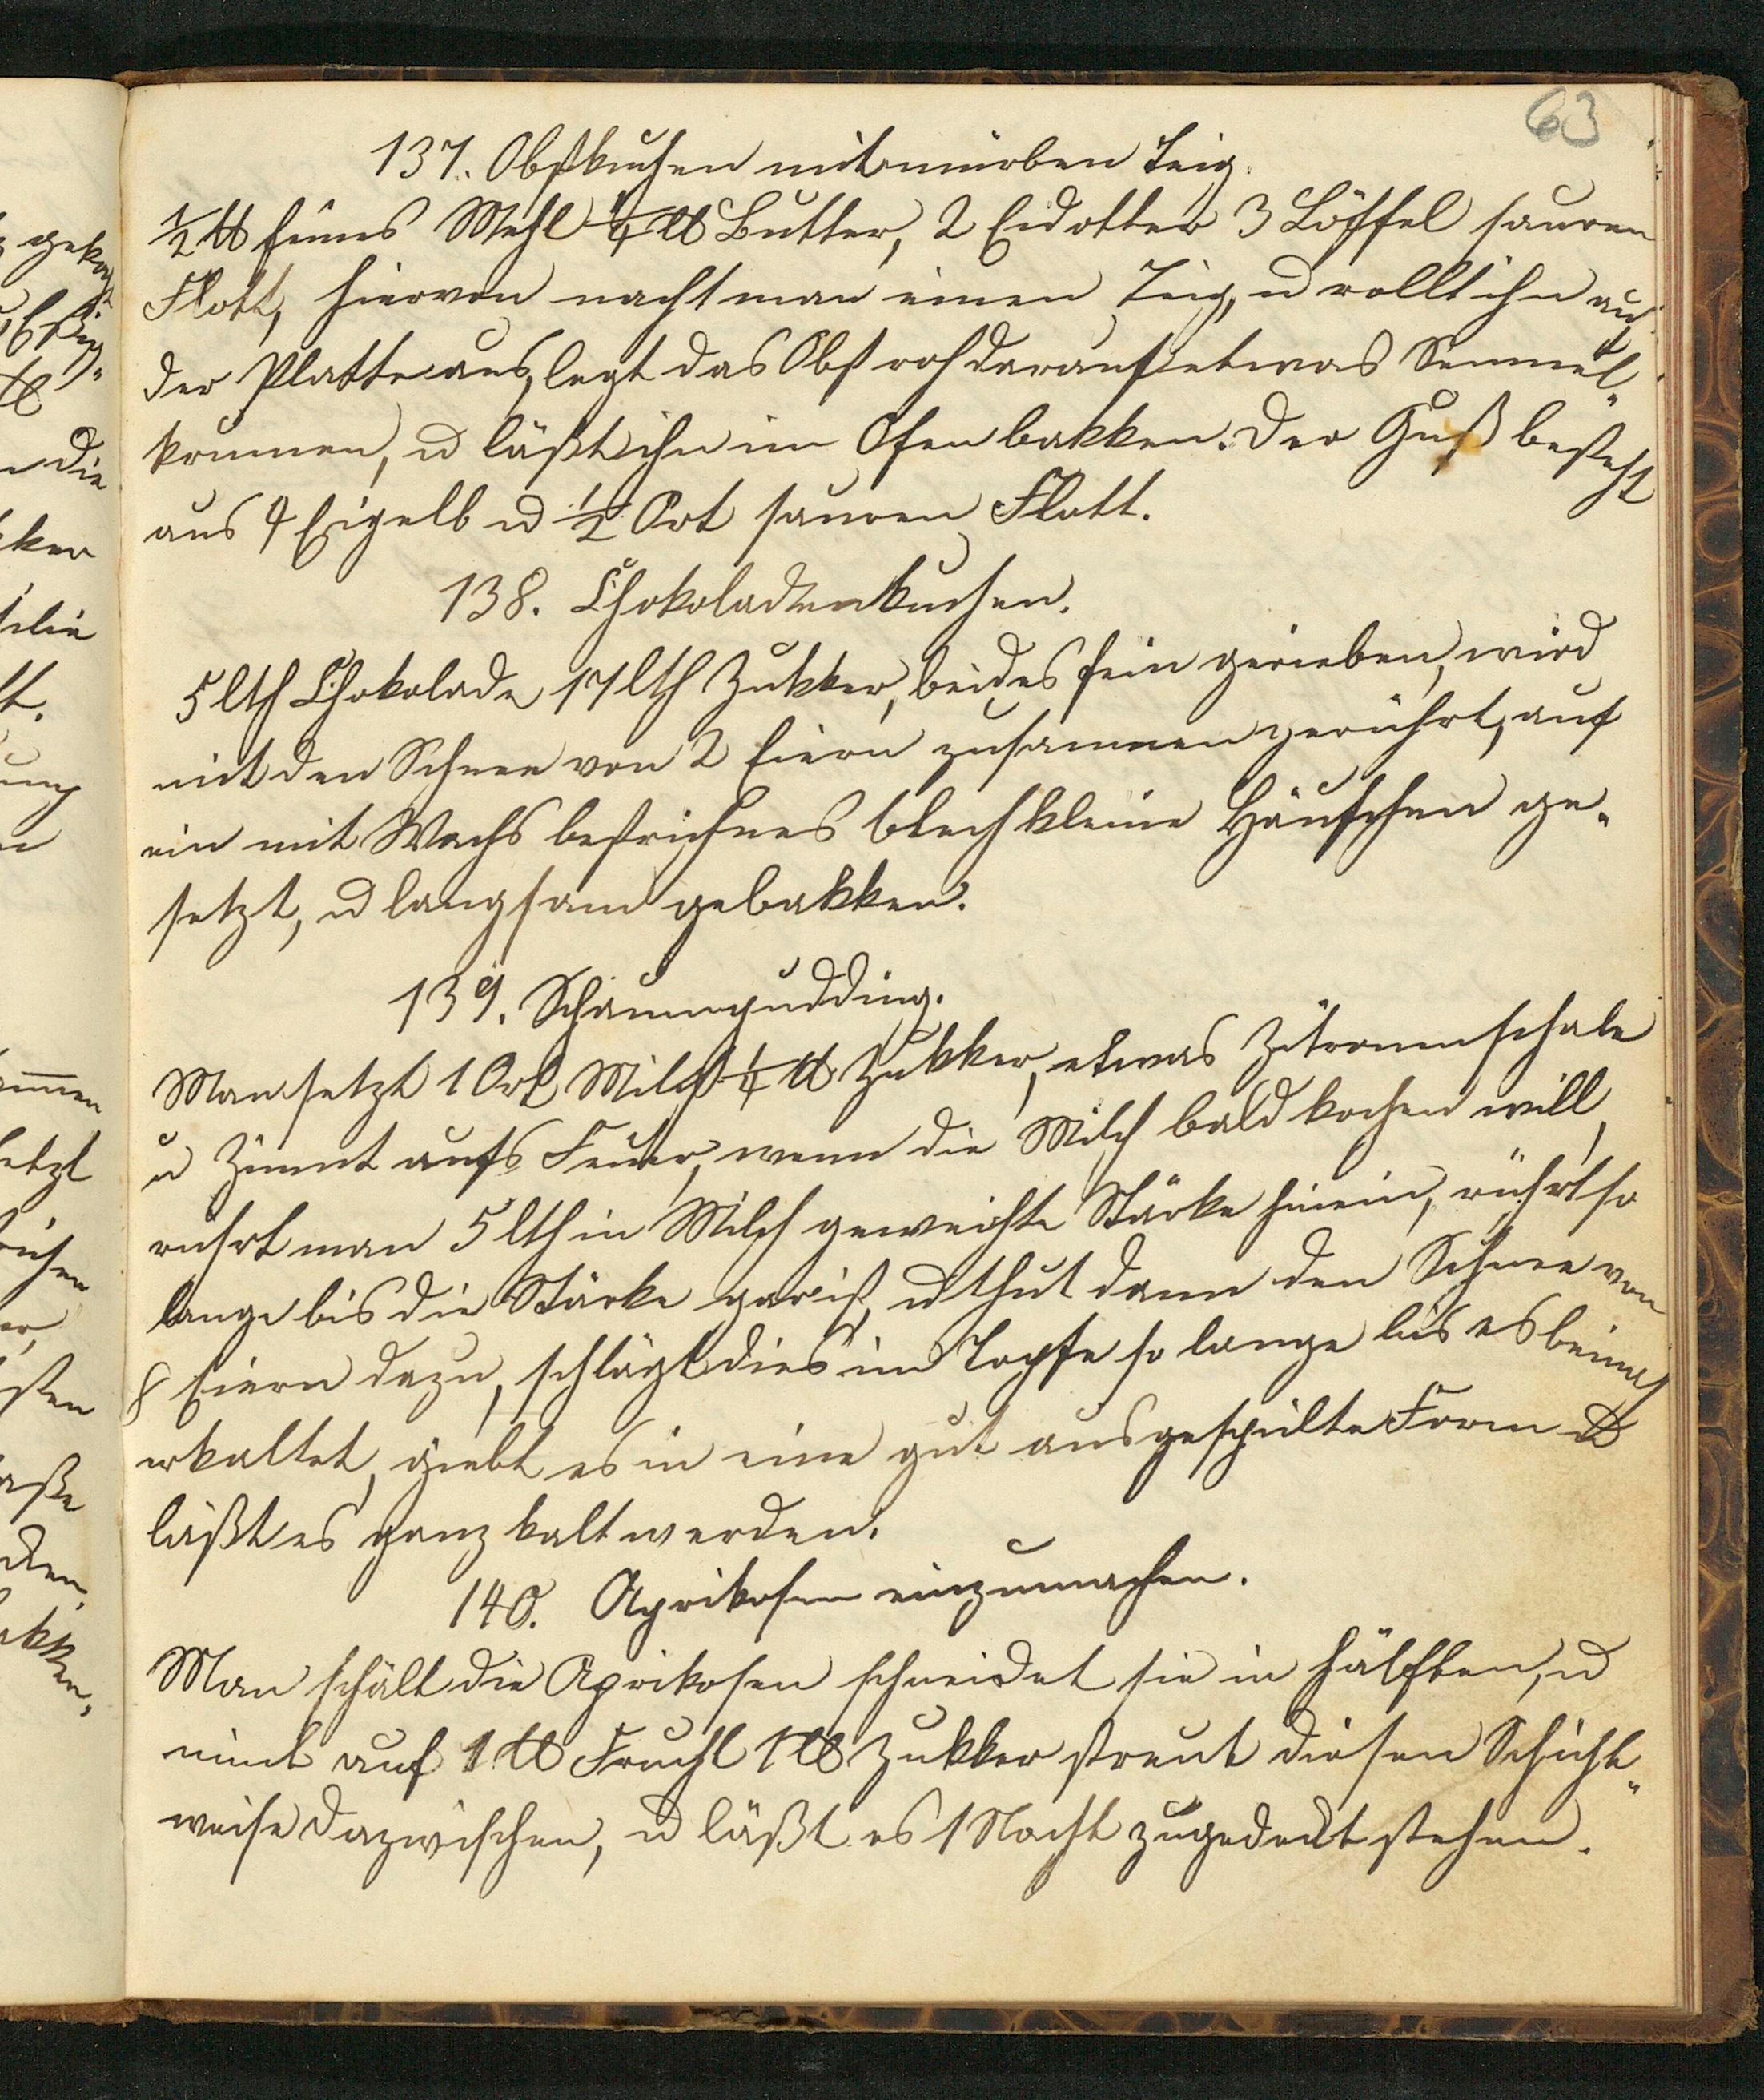 63
137. Obstkuchen mit mürben Teig.
½ ℔ feines Mehl ¼ ℔ Butter, 2 Eidotter 3 Löffel sauren
Flott, hiervon macht man einen Teig, u rollt ihn auf
der Platte aus, legt das Obst roh darauf etwas Semmel„
krumen, u läßt ihn im Ofen bakken. Der Guß besteht
aus 4 Eigelb u ½ Ort sauren Flott.
138. Chokoladenkuchen.
5 lth Chokolade 17 lth Zukker, beides fein gerieben, wird
mit den Schnee von 2 Eiern zusammen gerührt, auf
ein mit Wachs bestrichnes Blech kleine Häufchen ge„
setzt, u langsam gebakken.
139. Schaumpudding.
Man setzt 1 Ort Milch ¼ ℔ Zukker, etwas Zitronenschale
u Zimmt aufs Feuer, wenn die Milch bald kochen will,
rührt man 5 lth in Milch geweichte Stärke hinein, rührt so
lange bis die Stärke gar ist, u thut dann den Schnee von
8 Eiern dazu, schlägt dies im Topfe so lange bis es beinah
erkaltet, giebt es in eine gut ausgespülte Form u
läßt es ganz kalt werden.
140. Aprikosen einzumachen.
Man schält die Aprikosen schneidet sie in Hälften, u
nimt auf 1 ℔ Frucht 1 ℔ Zukker streut diesen Schicht„
weise dazwischen, u läßt es 1 Nacht zugedeckt stehen.